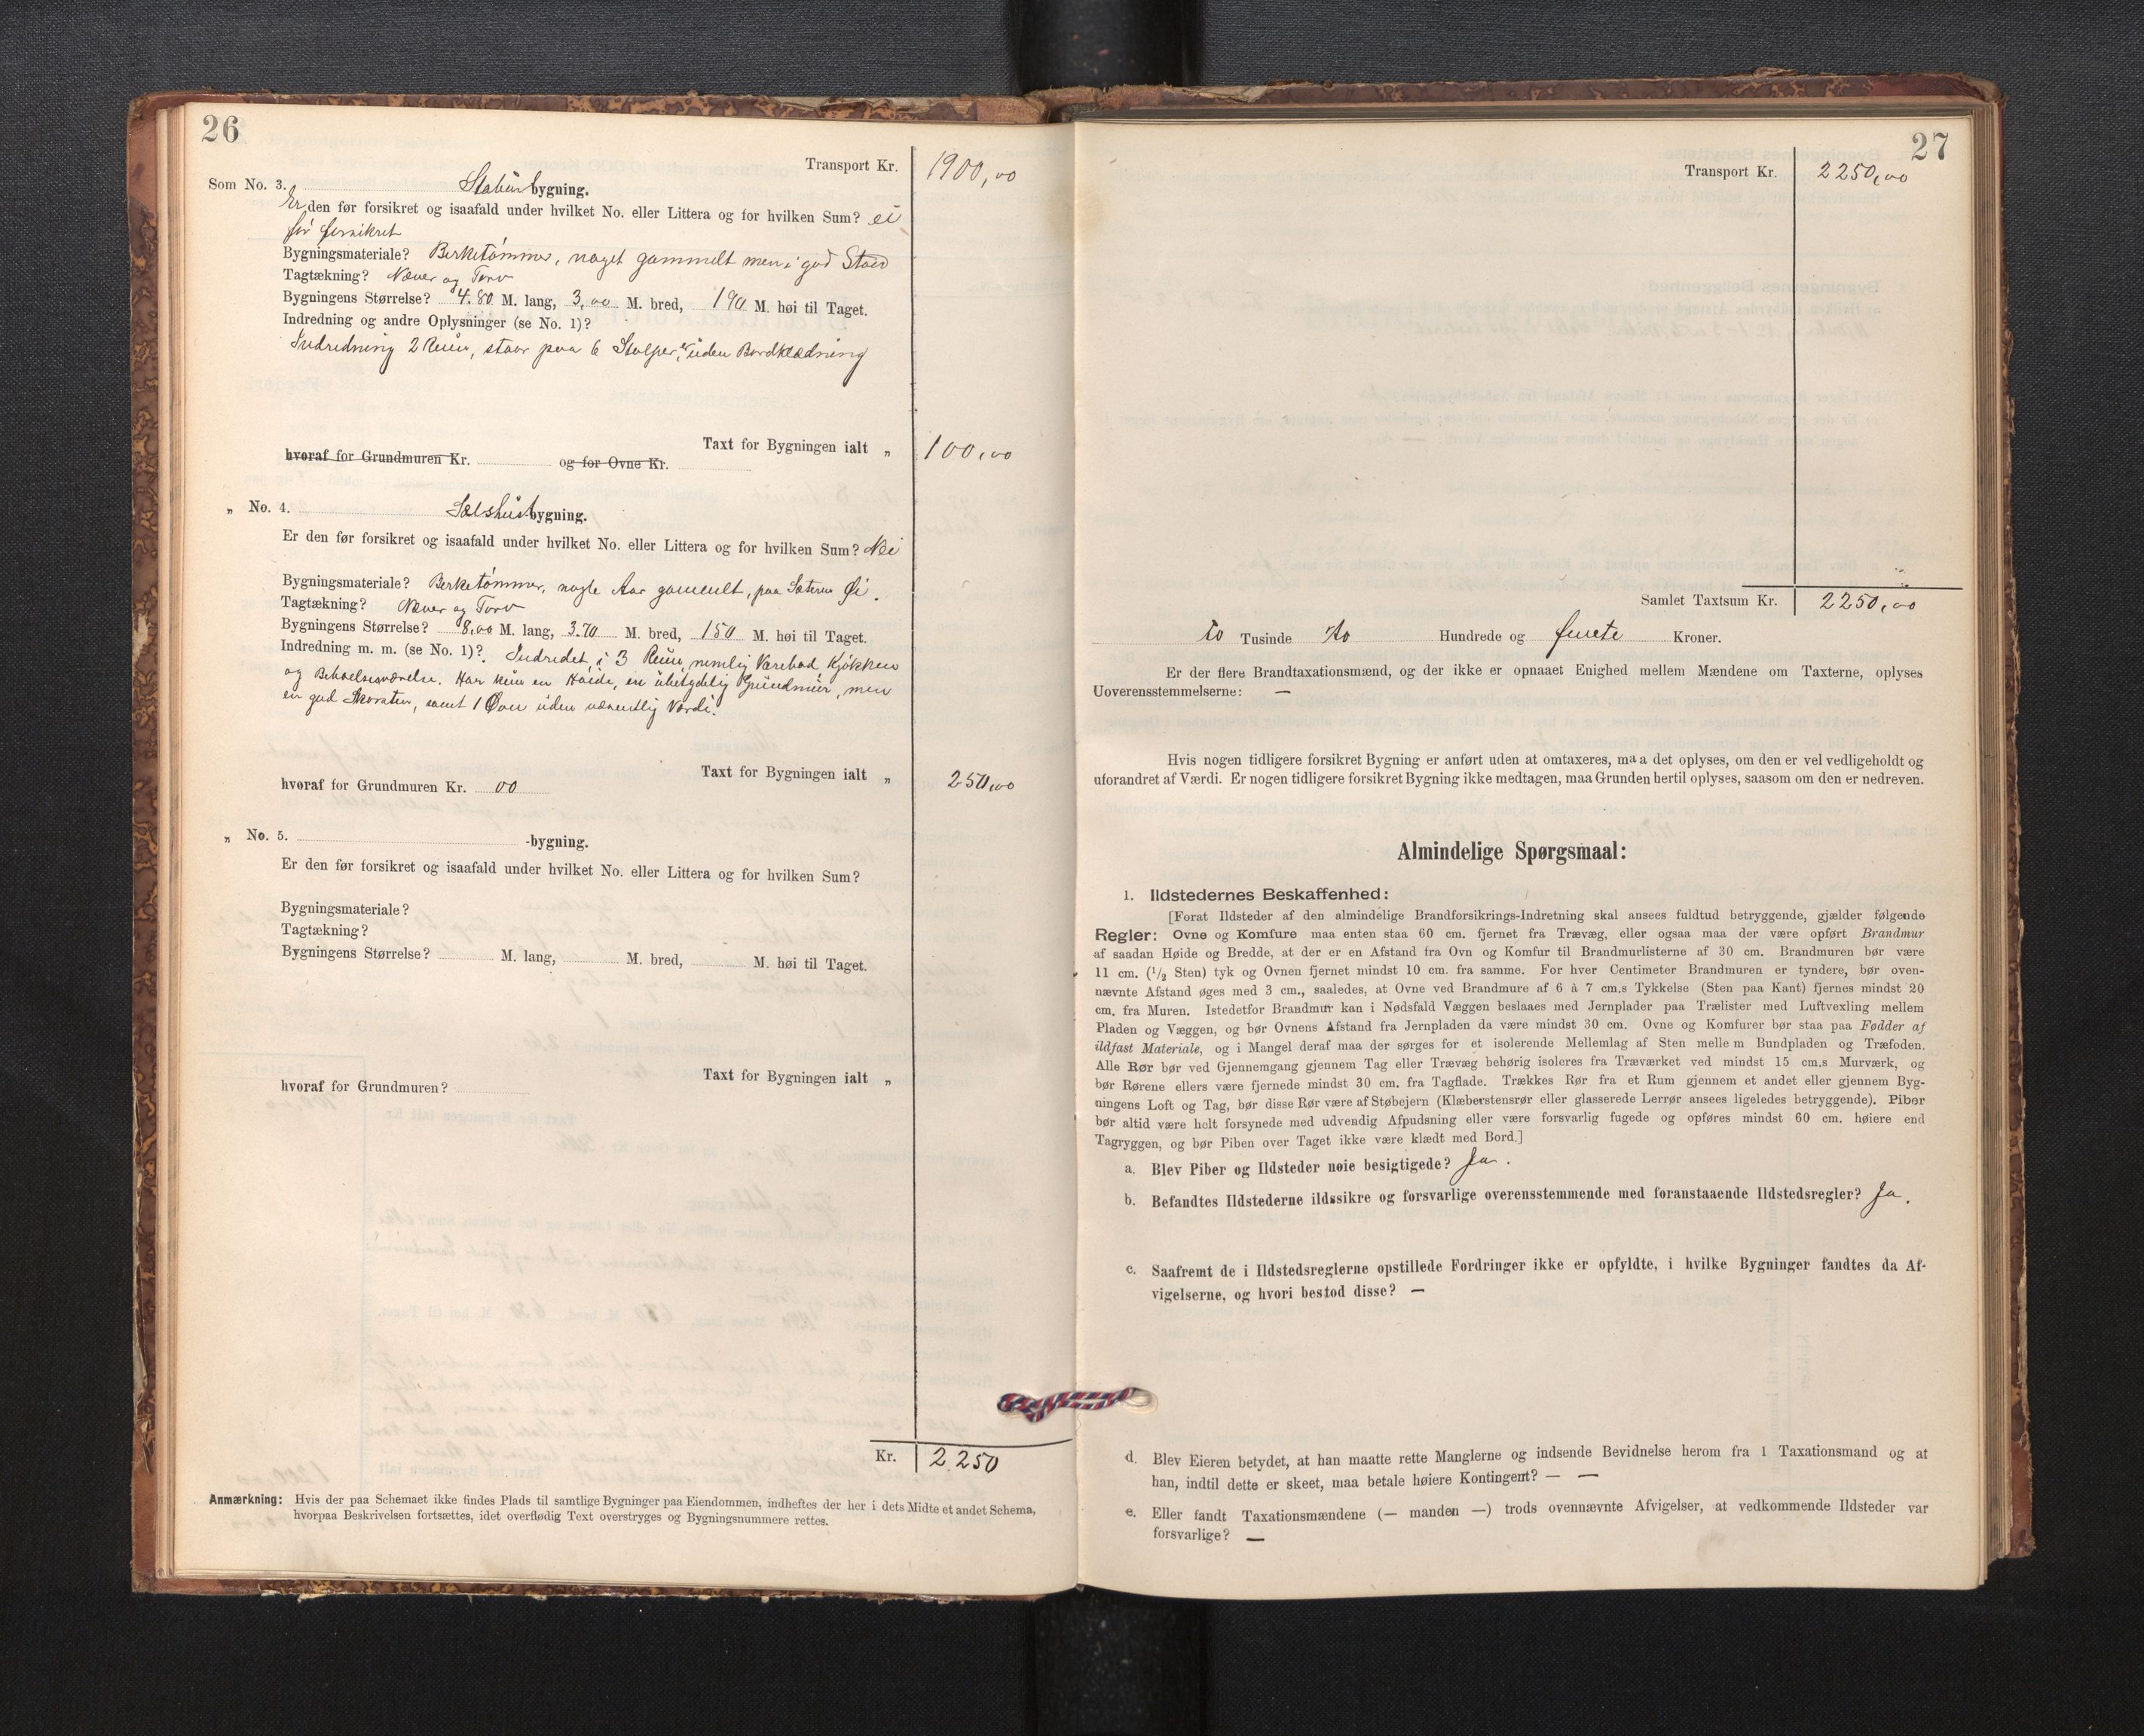 26
Transport Kr. 1900,00
Som No. 3. Stabursbygning.
Er den før forsikret og isaafald under hvilket No. eller Littera og for hvilken Sum? ei
før forsikret
Bygningsmateriale? Birketømmer, noget gammelt men i god Stand
Tagtækning? Næver og Torv
Bygningens Størrelse? 4.80 M. lang, 3,00 M. bred, 190 M. høi til Taget.
Indredning og andre Oplysninger (se No. 1)?
Indredning 2 Rum, staar paa 6 Stolper, er uden Bordklædning
Taxt for Bygningen ialt „ 100,00
hvoraf for Grundmuren Kr. og for Ovne Kr.
„ No. 4. Sælshusbygning.
Er den før forsikret og isaafald under hvilket No. eller Littera og for hvilken Sum? Nei
Bygningsmateriale? Birketømmer, nogle Aar gamelt, paa Sæteren Øi.
Tagtækning? Næver og Torv
Bygningens Størrelse? 8,00 M. lang, 3.70 M. bred, 150 M. høi til Taget.
Indredning m. m. (se No. 1)? Indredet i 3 Rum, nemlig Kjøkken
og Har kun en ubetydelig Grundmur, men
en god Skorsten, samt 1 Ovn uden væsentlig Værdi.
Taxt for Bygningen ialt „ 250,00
hvoraf for Grundmuren Kr. 00
„ No. 5. -bygning.
Er den før forsikret og isaafald under hvilket No. eller Littera og for hvilken Sum?
Bygningsmateriale?
Tagtækning?
Bygningens Størrelse? M. lang, M. bred, M. høi til Taget.
Taxt for Bygningen ialt „
hvoraf for Grundmuren?
Kr. 2250
Anmærkning: Hvis der paa Schemaet ikke findes Plads til samtlige Bygninger paa Eiendommen, indheftes der her i dets Midte et andet Schema,
hvorpaa Beskrivelsen fortsættes, idet overflødig Text overstryges og Bygningsnummere rettes.
27
Transport Kr. 2250,00
Samlet Taxtsum Kr. 2250,00
to Tusinde to Hundrede og femti Kroner.
Er der flere Brandtaxationsmænd, og der ikke er opnaaet Enighed mellem Mændene om Taxterne, oplyses
Uoverensstemmelserne: —
Hvis nogen tidligere forsikret Bygning er anført uden at omtaxeres, maa det oplyses, om den er vel vedligeholdt og
uforandret af Værdi. Er nogen tidligere forsikret Bygning ikke medtagen, maa Grunden hertil oplyses, saasom om den er nedreven.
Almindelige Spørgsmaal:
1. Ildstedernes Beskaffenhed:
[Forat Ildsteder af den almindelige Brandforsikrings-Indretning skal ansees fuldtud betryggende, gjælder følgende
Regler: Ovne og Komfure maa enten staa 60 cm. fjernet fra Trævæg, eller ogsaa maa der være opført Brandmur
af saadan Høide og Bredde, at der er en Afstand fra Ovn og Komfur til Brandmurlisterne af 30 cm. Brandmuren bør være
11 cm. (1/2 Sten) tyk og Ovnen fjernet mindst 10 cm. fra samme. For hver Centimeter Brandmuren er tyndere, bør oven-
nævnte Afstand øges med 3 cm., saaledes, at Ovne ved Brandmure af 6 à 7 cm.s Tykkelse (Sten paa Kant) fjernes mindst 20
cm. fra Muren. Istedetfor Brandmur kan i Nødsfald Væggen beslaaes med Jernplader paa Trælister med Luftvexling mellem
Pladen og Væggen, og bør Ovnens Afstand fra Jernpladen da være mindst 30 cm. Ovne og Komfurer bør staa paa Fødder af
ildfast Materiale, og i Mangel deraf maa der sørges for et isolerende Mellemlag af Sten mellem Bundpladen og Træfoden.
Alle Rør bør ved Gjennemgang gjennem Tag eller Trævæg behørig isoleres fra Træværket ved mindst 15 cm.s Murværk, og
bør Rørene ellers være fjernede mindst 30 cm. fra Tagflade. Trækkes Rør fra et Rum gjennem et andet eller gjennem Byg-
ningens Loft og Tag, bør disse Rør være af Støbejern (Klæberstensrør eller glasserede Lerrør ansees ligeledes betryggende). Piber
bør altid være holt forsynede med udvendig Afpudsning eller være forsvarlig fugede og opføres mindst 60 cm. høiere end
Tagryggen, og bør Piben over Taget ikke være klædt med Bord.]
a. Blev Piber og Ildsteder nøie besigtigede? Ja.
b. Befandtes Ildstederne ildssikre og forsvarlige overensstemmende med foranstaaende Ildstedsregler? Ja.
c. Saafremt de i Ildstedsreglerne opstillede Fordringer ikke er opfyldte, i hvilke Bygninger fandtes da Af-
vigelserne, og hvori bestod disse? —
d. Blev Eieren betydet, at han maatte rette Manglerne og indsende Bevidnelse herom fra 1 Taxationsmand og at
han, indtil dette er skeet, maa betale høiere Kontingent? — —
e. Eller fandt Taxationsmændene (— manden —) trods ovennævnte Afvigelser, at vedkommende Ildsteder var
forsvarlige? —